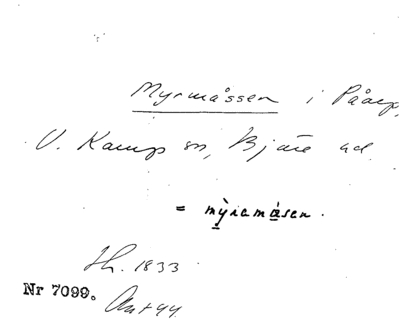 Myrmåssen i Påarp,
V. Karup sn, Bjäre hd.
= mỳremåsen.
Jh. 1833
Nr 7099.